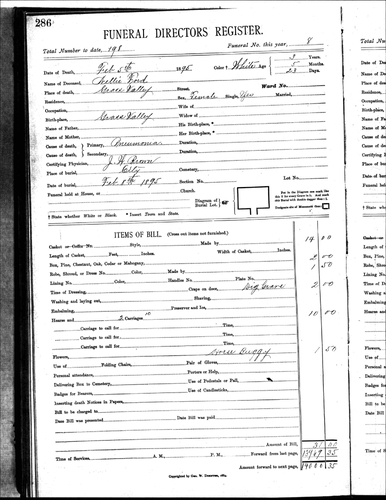 286
FUNERAL DIRECTORS REGISTER.
Total Number to date, 198 Funeral No. this year, 8
Date of Death, Feb 5th 1895 Color † White Age 3 Years.
5 Months.
23 Days.
Name of Deceased, Ford
Place of death, Grass Valley Street, Ward No.
Residence, Sex, Female Single, Yes Married,
Occupation, Wife of
Birth-place, Grass Valley Widow of
Name of Father, His Birth-place,*
Name of Mother, Her Birth-place,*
Cause of death, Primary, Pneumonia Duration,
Cause of death, Secondary, Duration,
Certifying Physician, J. H. Brown
Place of burial, City Cemetery,
Date of burial, Feb 8th 1895 Section No. Lot No.
Funeral held at House, or Church.
Diagram of Burial Lot.
Put in the Diagram one mark like
this for every Grave in it. And mark
this Burial with double dagger thus: ‡
Designate site of Monument thus
† State whether White or Black. * Insert Town and State.
ITEMS OF BILL. (Cross out items not furnished.)
Casket or Coffin No. Style, Made by 14 00
Length of Casket, Feet, Inches. Width of Casket, Inches.
Box, Pine, Chestnut, Oak, Cedar or Mahogany, 2 00
Robe, Shroud, or Dress No. Color, Made by 1 50
Lining No. Color, Handles No. Plate No.
Time of Dressing, Crape on door, Dig Grave 2 00
Washing and laying out, Shaving,
Embalming, Preserver and Ice,
Hearse and 2 Carriages 10 10 00
Carriage to call for Time,
Carriage to call for Time,
Carriage to call for Time,
Flowers, Horse Buggy 1 50
Use of Folding Chairs, Pair of Gloves,
Personal attendance, Porters or Help,
Delivering Box to Cemetery, Use of Pedestals or Pall,
Badges for Bearers, Use of Candlesticks,
Inserting death Notices in Papers,
Bill to be charged to
Date Bill was presented Date Bill was paid
Amount of Bill, 31 00
Time of Services, A. M., P. M., Forward from last page, 35
Amount forward to next page, 35
Copyrighted by Geo. W.